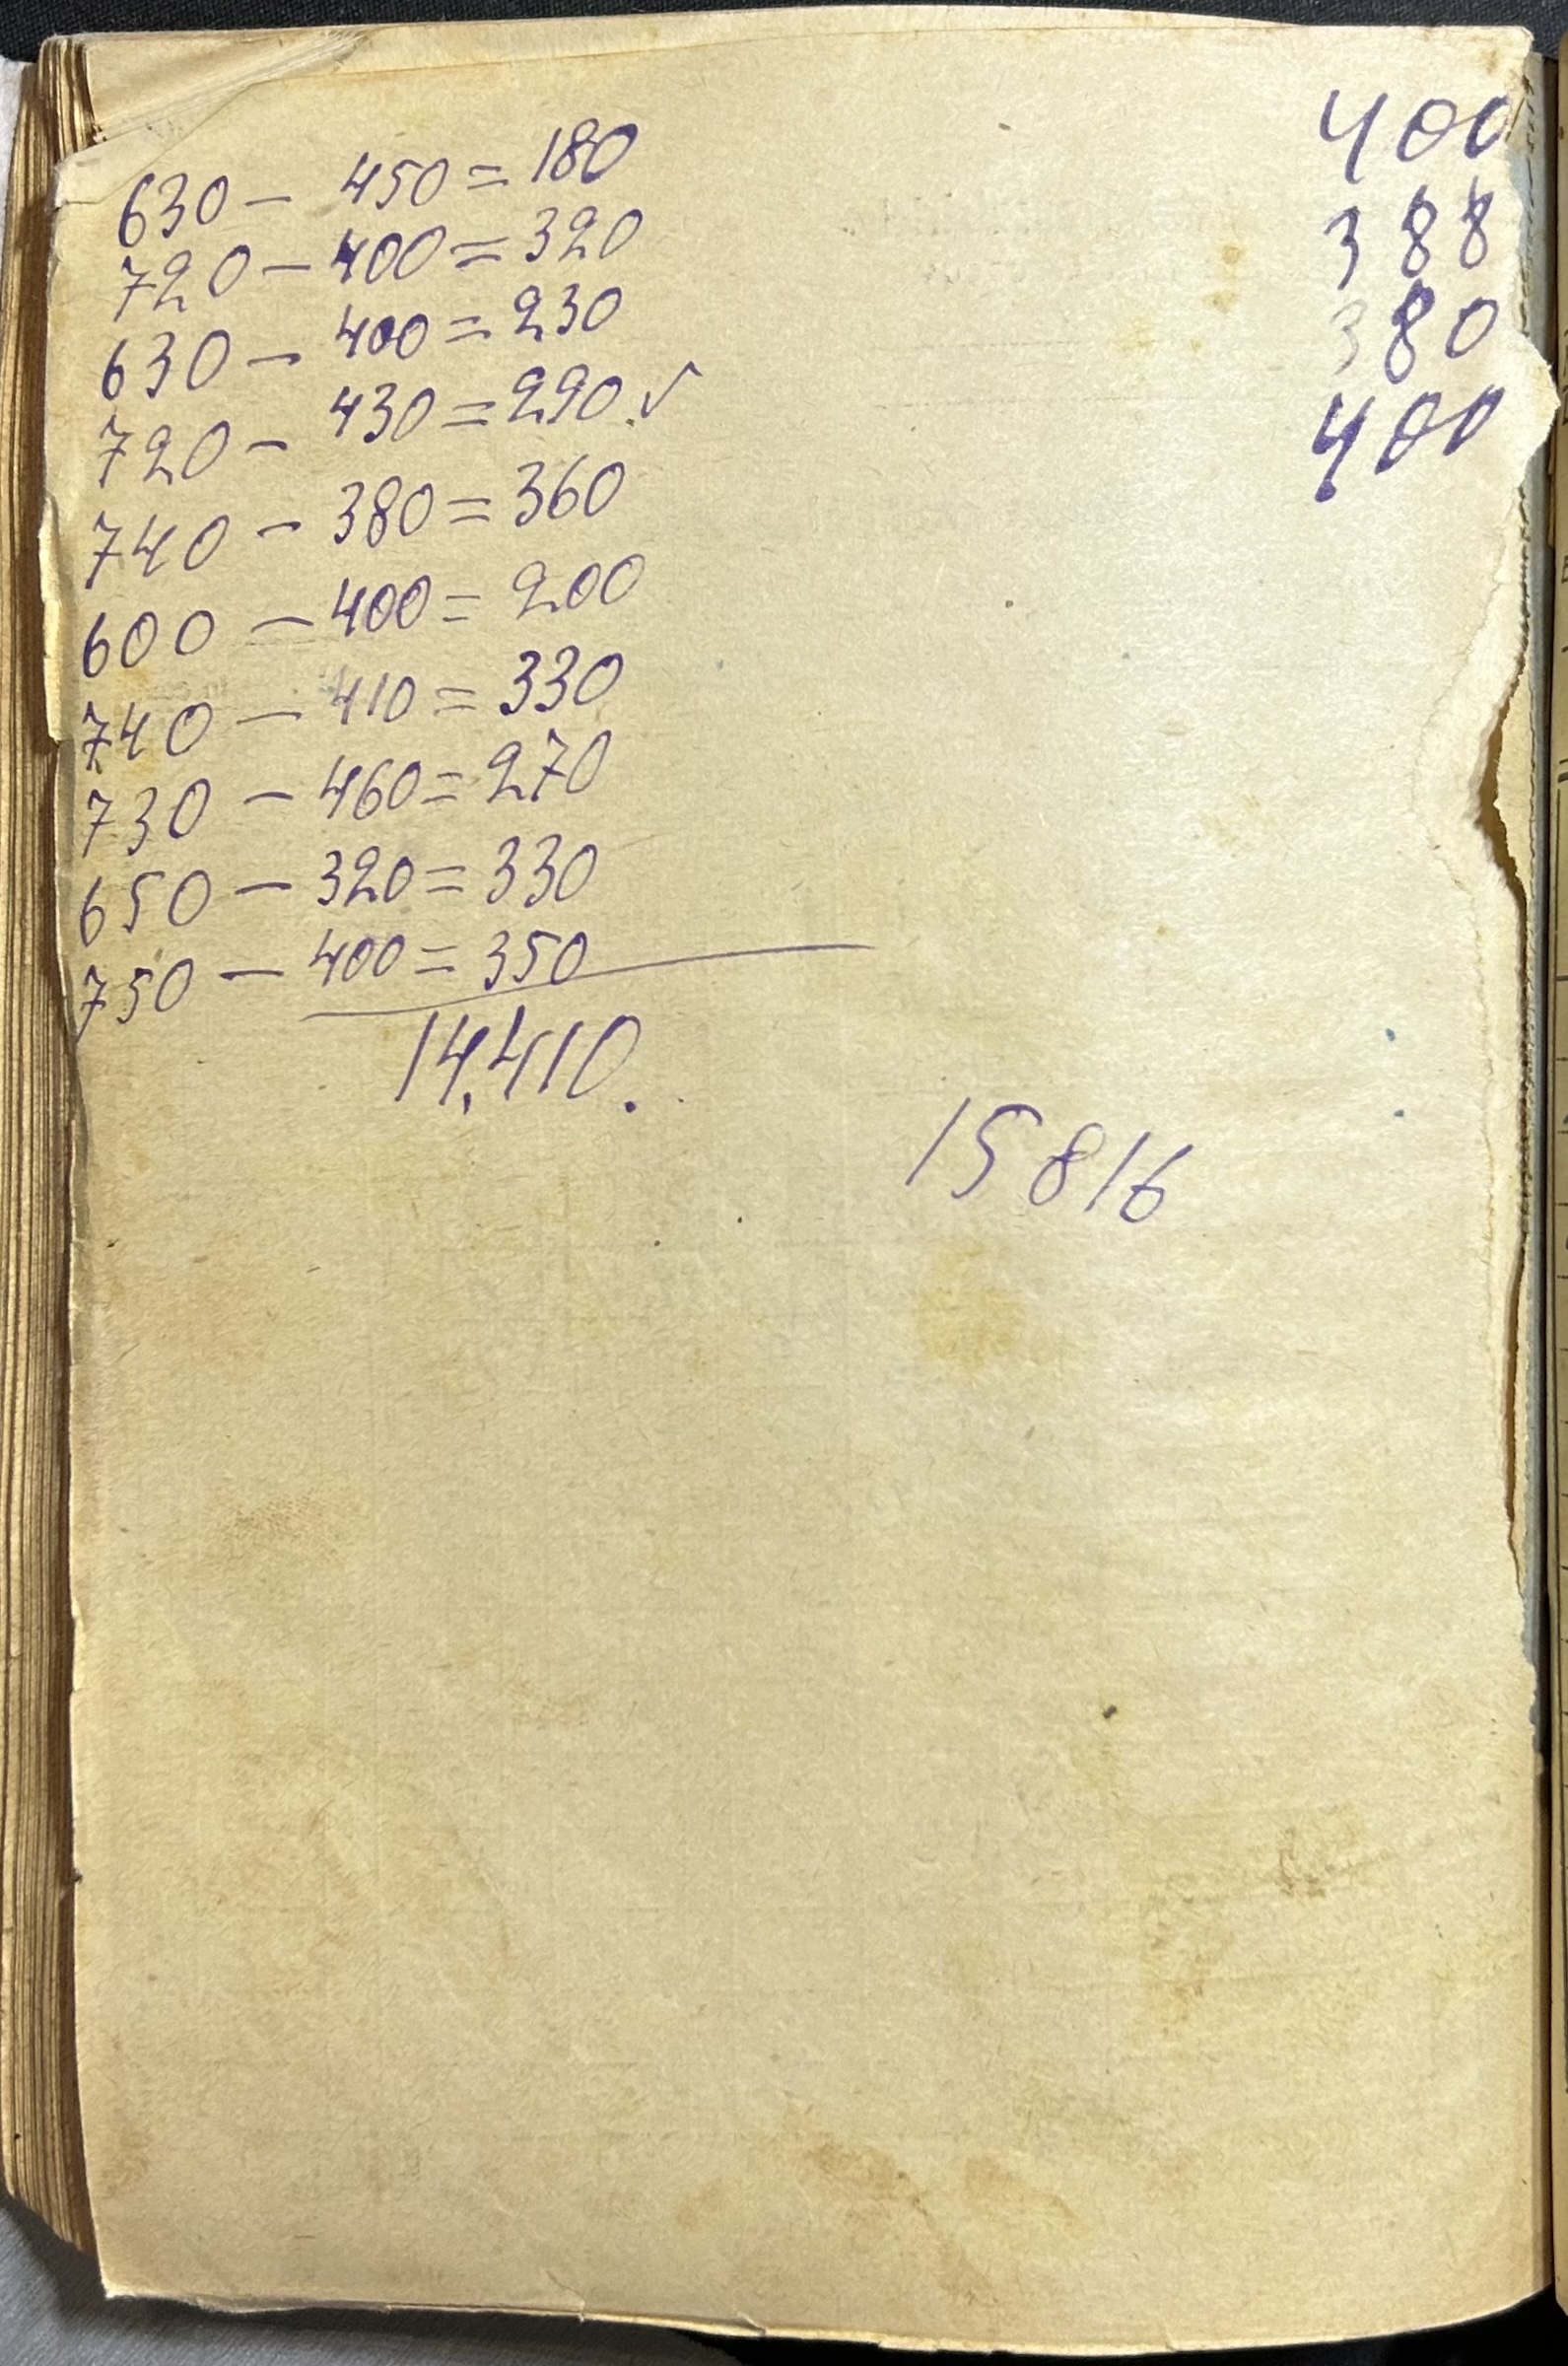 630 – 450 = 180
720 – 400 = 320
630 – 400 = 230
720 – 430 = 290. ✓
740 – 380 = 360
600 – 400 = 200
740 – 410 = 330
730 – 460 = 270
650 – 320 = 330
750 – 400 = 350
14.410.
400
388
380
400
15816